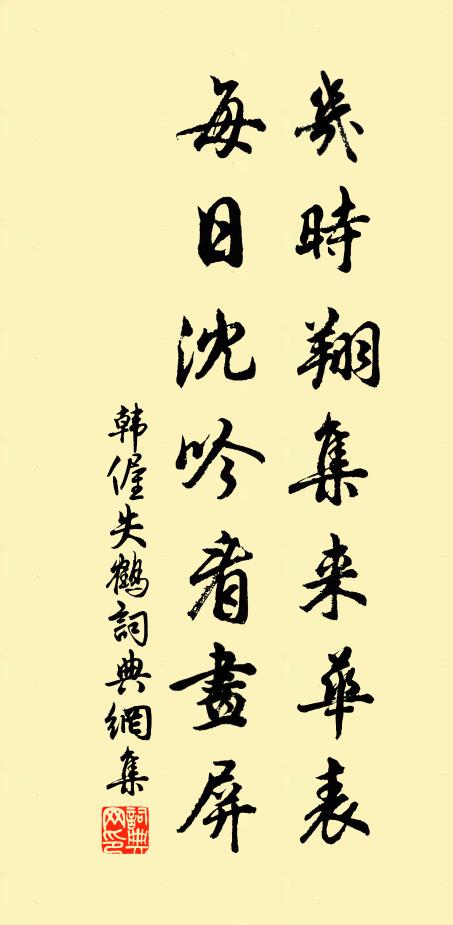 幾時翔集來華表
每日沈吟看畫屏
韓偓失鶴詞典網集
詞典網印